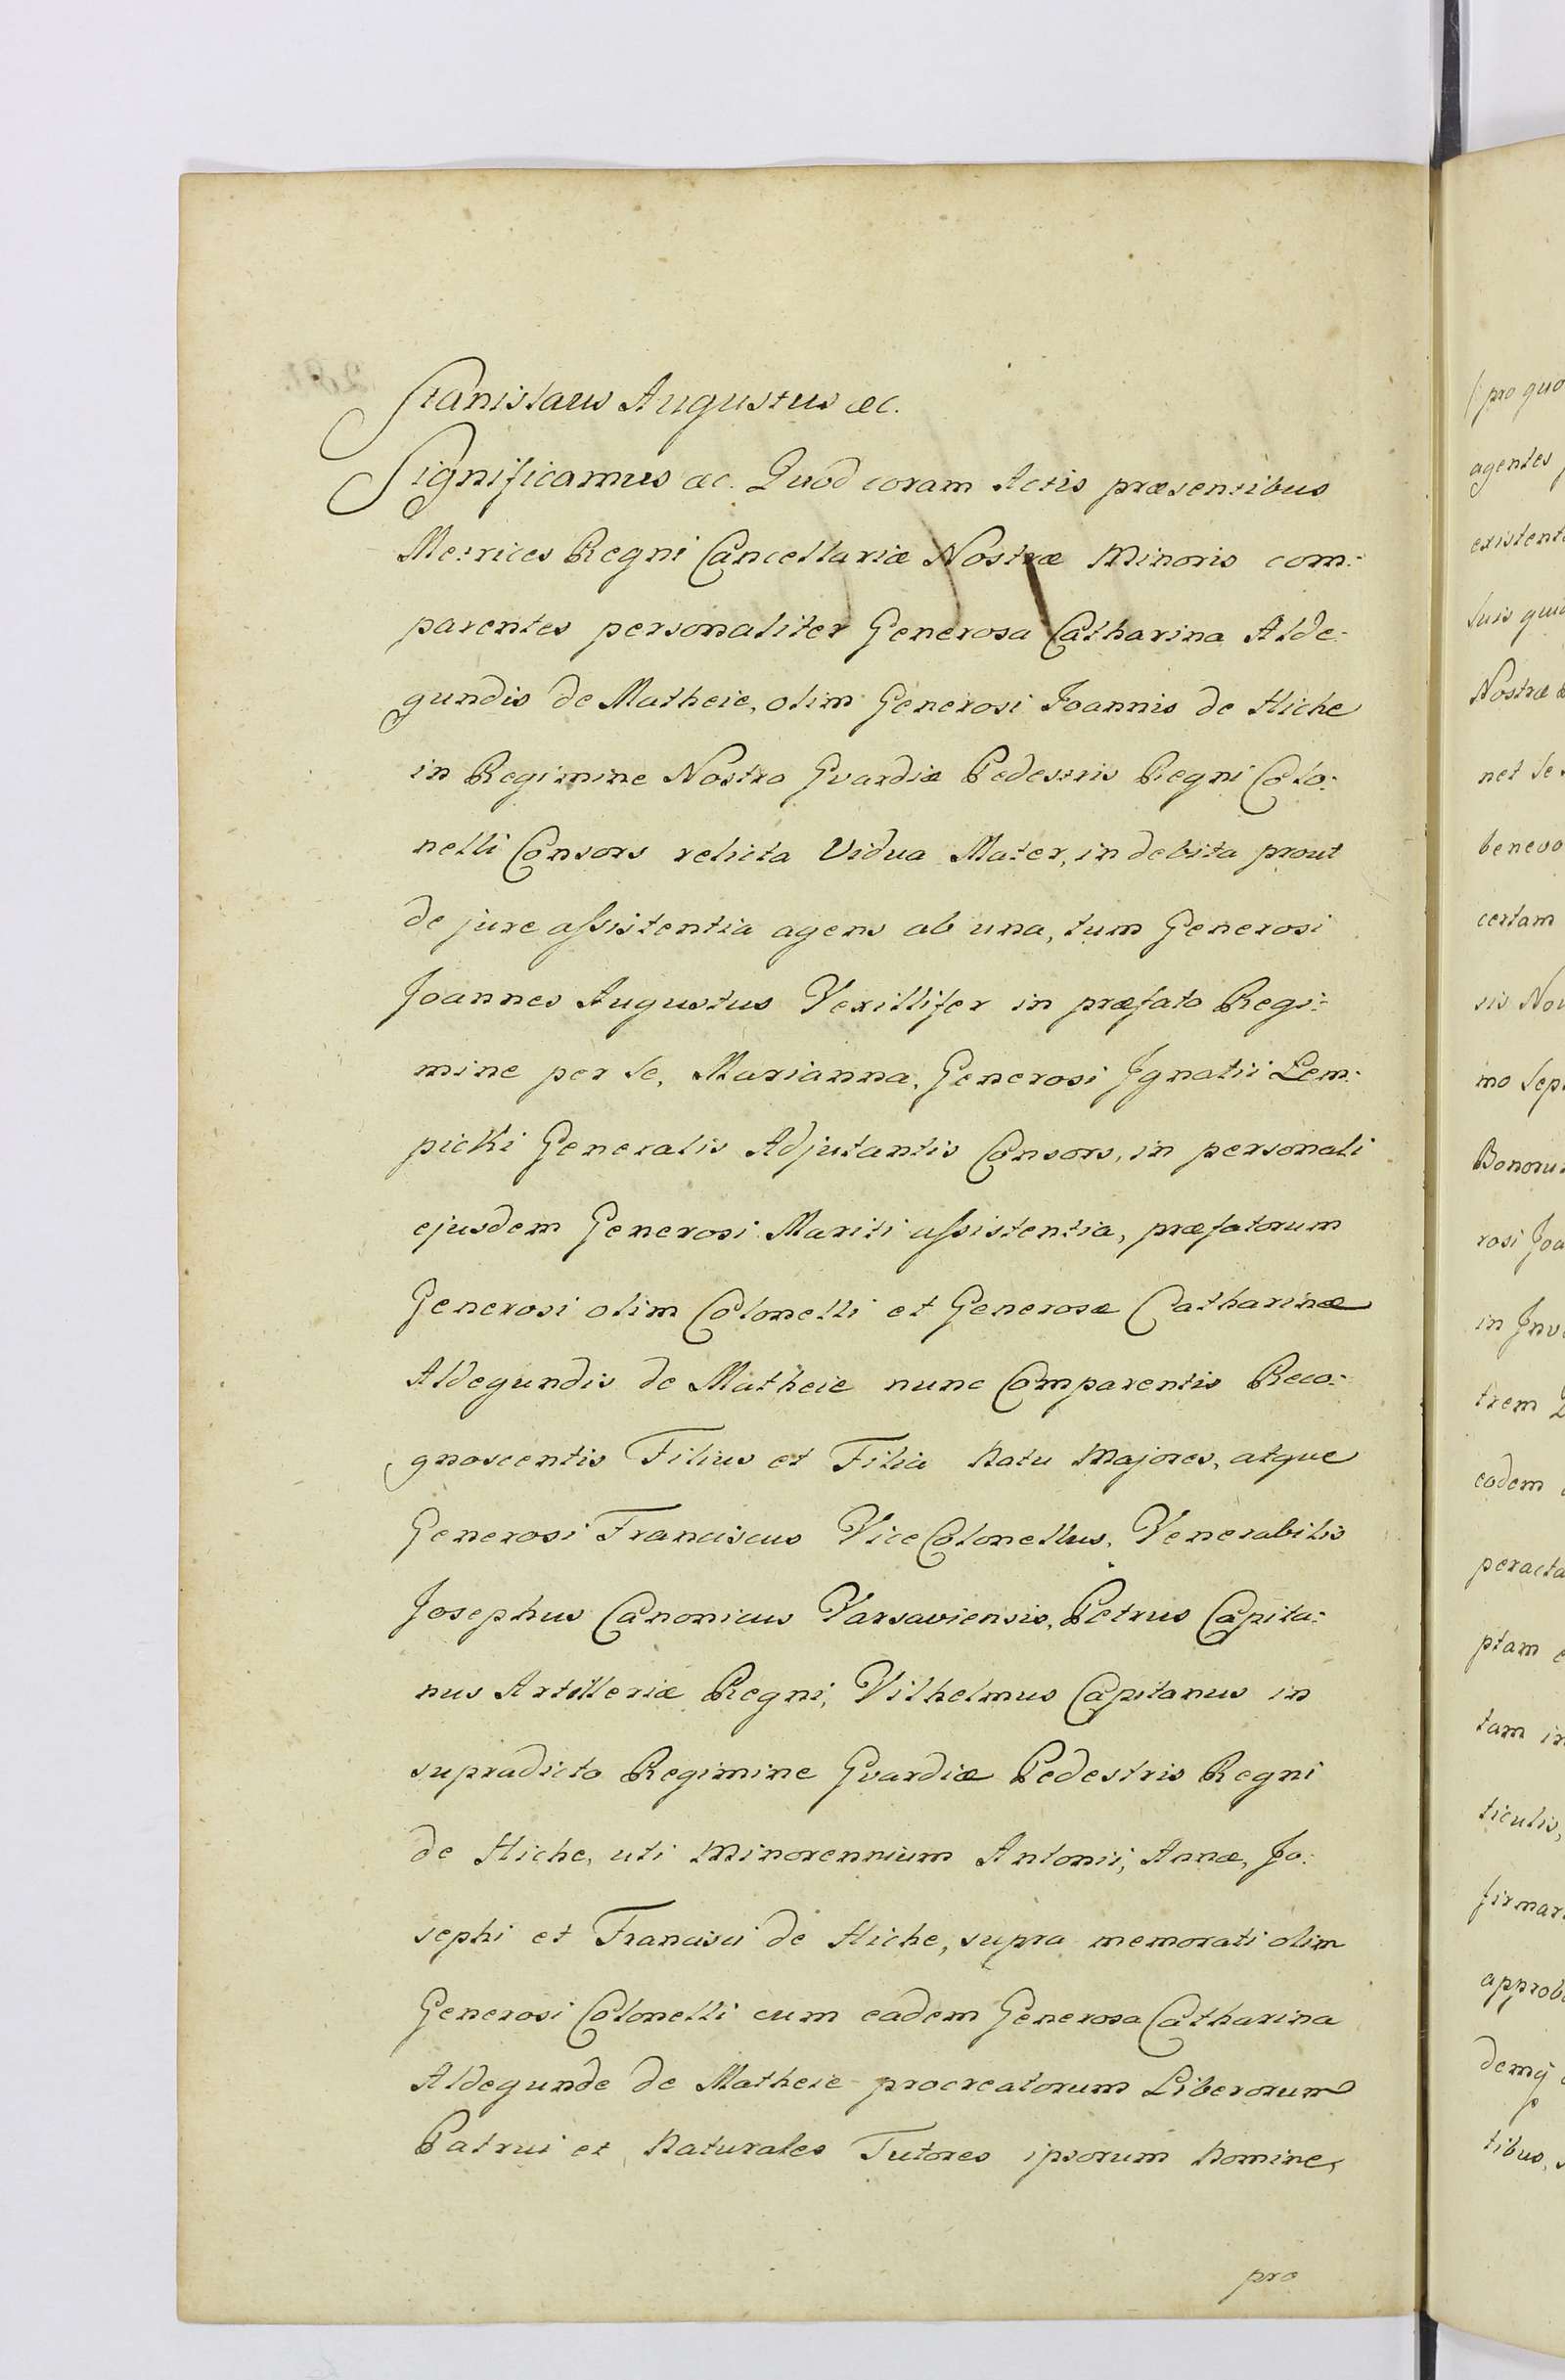 Stanislaus Augustus &c.
Significamus &c. Quod coram Actis præsentibus
Metrices Regni Cancellariæ Nostræ Minoris com:
parentes personaliter Generosa Catharina Alde:
gundis de Matheie, olim Generosi Joannis de Hiche
in Regimine Nostro Gvardiæ Pedestris Regni Colo:
nelli Consors relicta Vidua Mater, in debita prout
de jure assistentia agens ab una, tum Generosi
Joannes Augustus Vexillifer in præfato Regi:
mine per se, Marianna, Generosi Ignatii Lem:
picki Generalis Adjutantis Consors, in personali
ejusdem Generosi Mariti assistentia, præfatorum
Generosi olim Colonelli et Generosæ Catharinæ
Aldegundis de Matheie nunc Comparentis Reco:
gnoscentis Filius et Filia Natu Majores, atque
Generosi Franciscus ViceColonellus, Venerabilis
Josephus Canonicus Varsaviensis, Petrus Capita:
nus Artilleriæ Regni, Vilhelmus Capitanus in
supradicto Regimine Gvardiæ Pedestris Regni
de Hiche, uti Minorennium Antonii, Annæ, Jo:
sephi et Francisci de Hiche, supra memorati olim
Generosi Colonelli cum eadem Generosa Catharina
Aldegunde de Matheie procreatorum Liberorum
Patrui et Naturales Tutores ipsorum Nomine,
pro
(pro quo
agentes
existent
suis qui
Nostræ
net se
benevo
certam
sis Nov
mo Sep
Bonoru
rosi Joa
in Inv
trem
eadem
peracta
ptam
tam in
ticulis,
firmar
approb
demq
tibus,